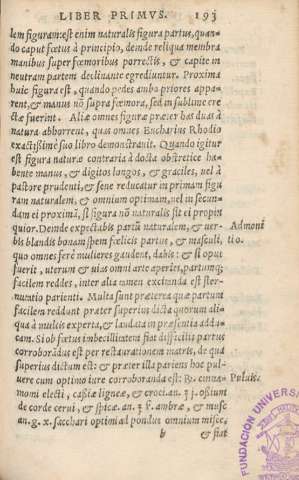 LIBER PRIMVS. 193
lem figuram:est enim naturalis figura partus,quan-
do caput fœtus à principio, deinde reliqua membra
manibus super fœmoribus porrectis, & capite in
neutram partem declinante egrediuntur. Proxima
huic figura est, quando pedes ambo priores appa-
rent,& manus nõ supra fœmora, sed in sublime ere
ctæ fuerint. Aliæ omnes figuræ præter has duas à
natura abhorrent, quas omnes Eucharius Rhodio
exactißimè suo libro demonstrauit. Quando igitur
est figura naturæ contraria à docta obstetrice ha-
bente manus, & digitos longos, & graciles, vel à
pastore prudenti, & sene reducatur in primam figu
ram naturalem, & omnium optimam, vel in secun-
dam ei proximã, si figura nõ naturalis sit ei propin
quior. Demde expectabis partũ naturalem, & ver-
bis blandis bonam spem fœlicis partus, & masculi,
quo omnes ferè mulieres gaudent, dabis: & si opus
fuerit, uterum & uias omni arte aperies, partumq;
facilem reddes, inter alia autem excitanda est ster-
nutatio parienti. Multa sunt præterea quæ partum
facilem reddunt præter superius dicta quorum ali-
qua à multis experta, & laudata in præsentia adda-
cam. Si ob fœtus imbecillitatem fiat difficilis partus
corroborãdus est per restaurationem matris, de qua
superius dictum est: & præter illa pariens hoc pul-
uere cum optimo iure corroboranda est: ℞. cinna-
momi electi, caßiæ ligneæ, & croci.an. ʒ j. oßium
de corde cerui, & spicæ.an. ʒ ß. ambræ, & musc
an.g.x. sacchari optimi ad pondus omnium misce,
b & fiat
Admoni
tio.
Puluis.
FUNDACION UNIVERS